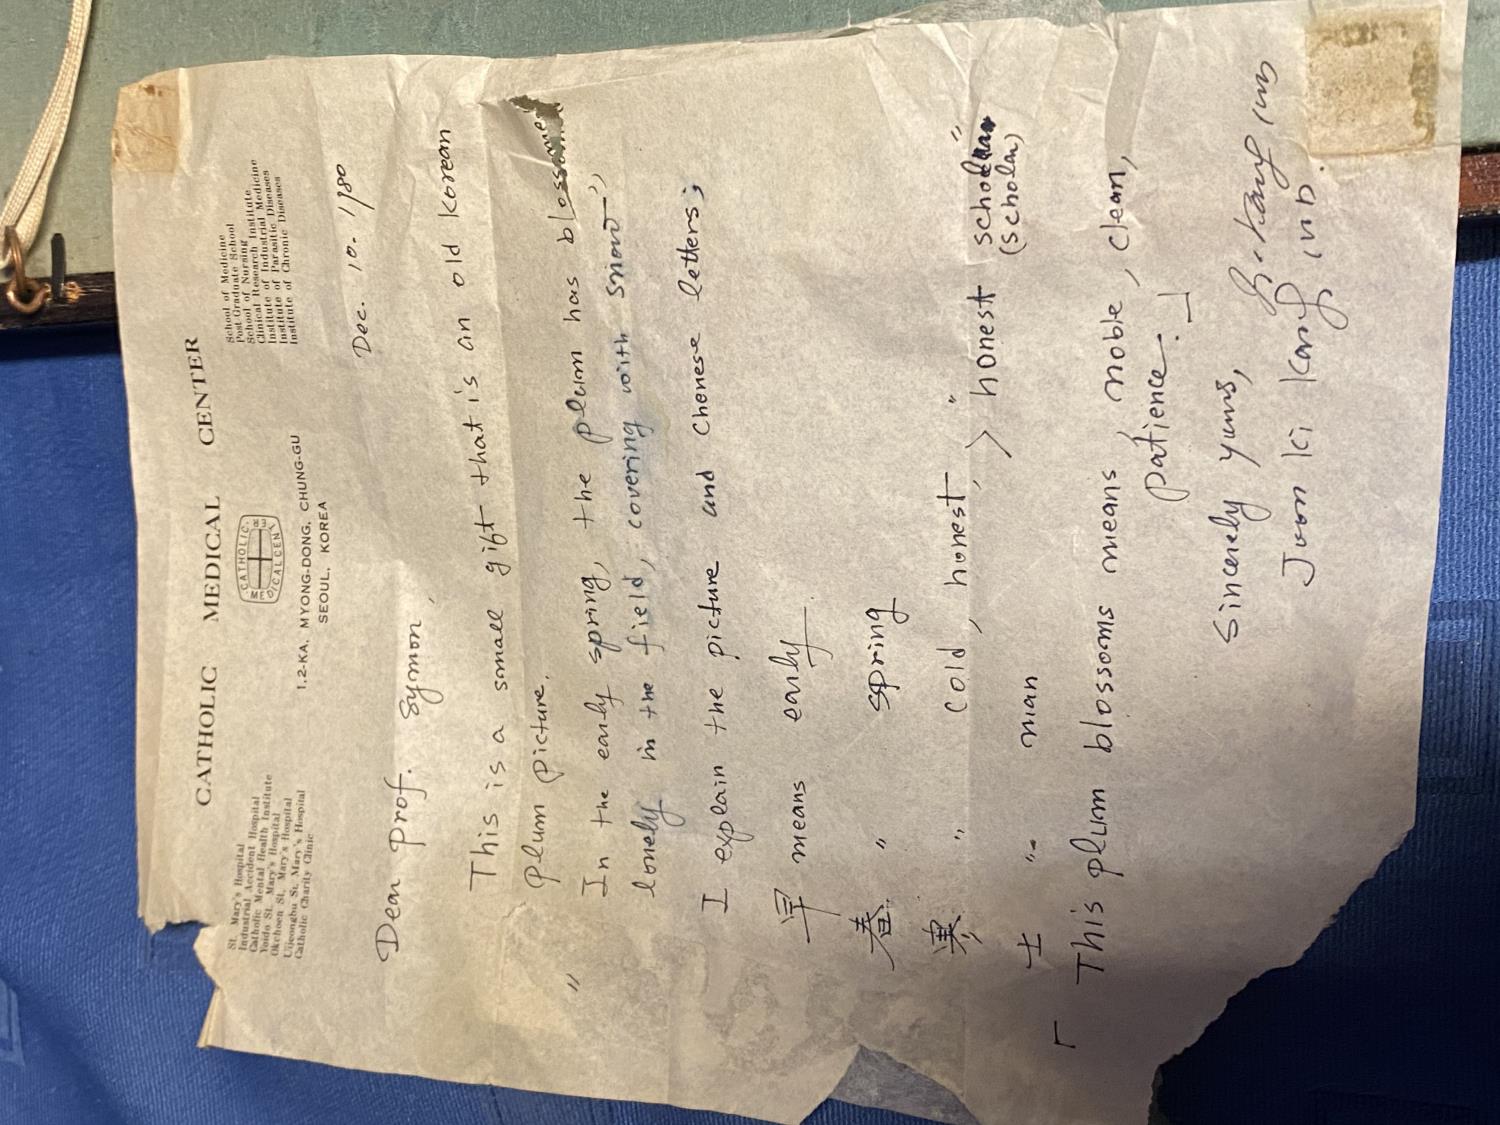 CATHOLIC MEDICAL CENTER
St. Mary's Hospital
Industrial Accident Hospital
Catholic Mental Health Institute
Yoido St. Mary's Hospital
Okcheon St. Mary's Hospital
Uijeongbu St. Mary's Hospital
Catholic Charity Clinic
CATHOLIC
MEDICAL CENTER
1,2-KA, MYONG-DONG, CHUNG-GU
SEOUL, KOREA
School of Medicine
Post Graduate School
School of Nursing
Clinical Research Institute
Institute of Industrial Medicine
Institute of Parasitic Diseases
Institute of Chronic Diseases
Dec. 10. 1980
Dear Prof. Symon,
This is a small gift that is an old Korean
plum picture.
" In the early spring, the plum has blossomes
lonely in the field, covering with snow",
I explain the picture and Chonese letters;
早 means early
春 " spring
寒 " cold, honest, "
士 " man > honest scholar "
(scholar)
「 This plum blossoms means, noble, clean,
patience. 」
Sincerely yours,
Joon Ki Kang